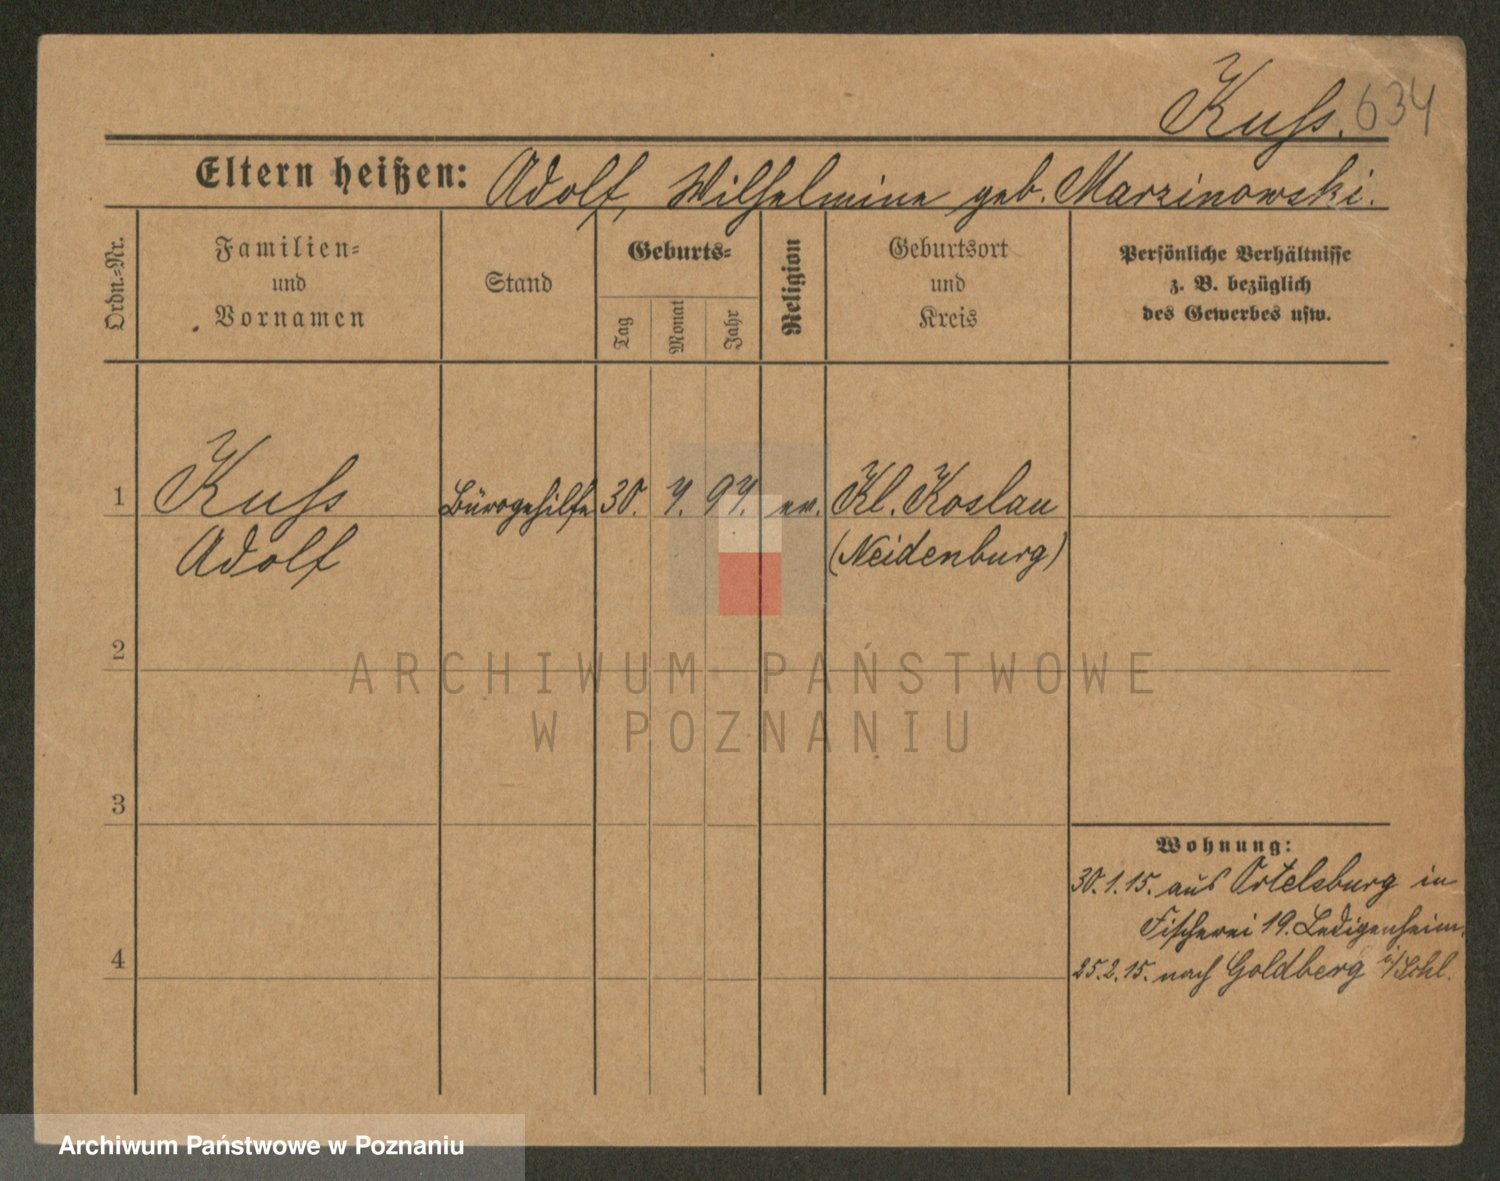 Kuss. 634
Eltern heißen: Adolf, Wilhelmine geb. Marzinowski.
Ordn.-Nr.
Familien- und Vornamen
Stand
Geburts-
Tag
Monat
Jahr
Religion
Geburtsort und Kreis
Persönliche Verhältnisse
z. B. bezüglich
des Gewerbes usw.
1 Kuss Bürogehilfe 30. 4. 94. ev. Kl. Koslau
Adolf (Neidenburg)
2
ARCHIWUM PAŃSTWOWE
W POZNANIU
3
Wohnung:
30.1.15. aus Ortelsburg in
Fischerei 19. Ledigenheim.
4
25.2.15. nach Goldberg i/Schl.
Archiwum Państwowe w Poznaniu